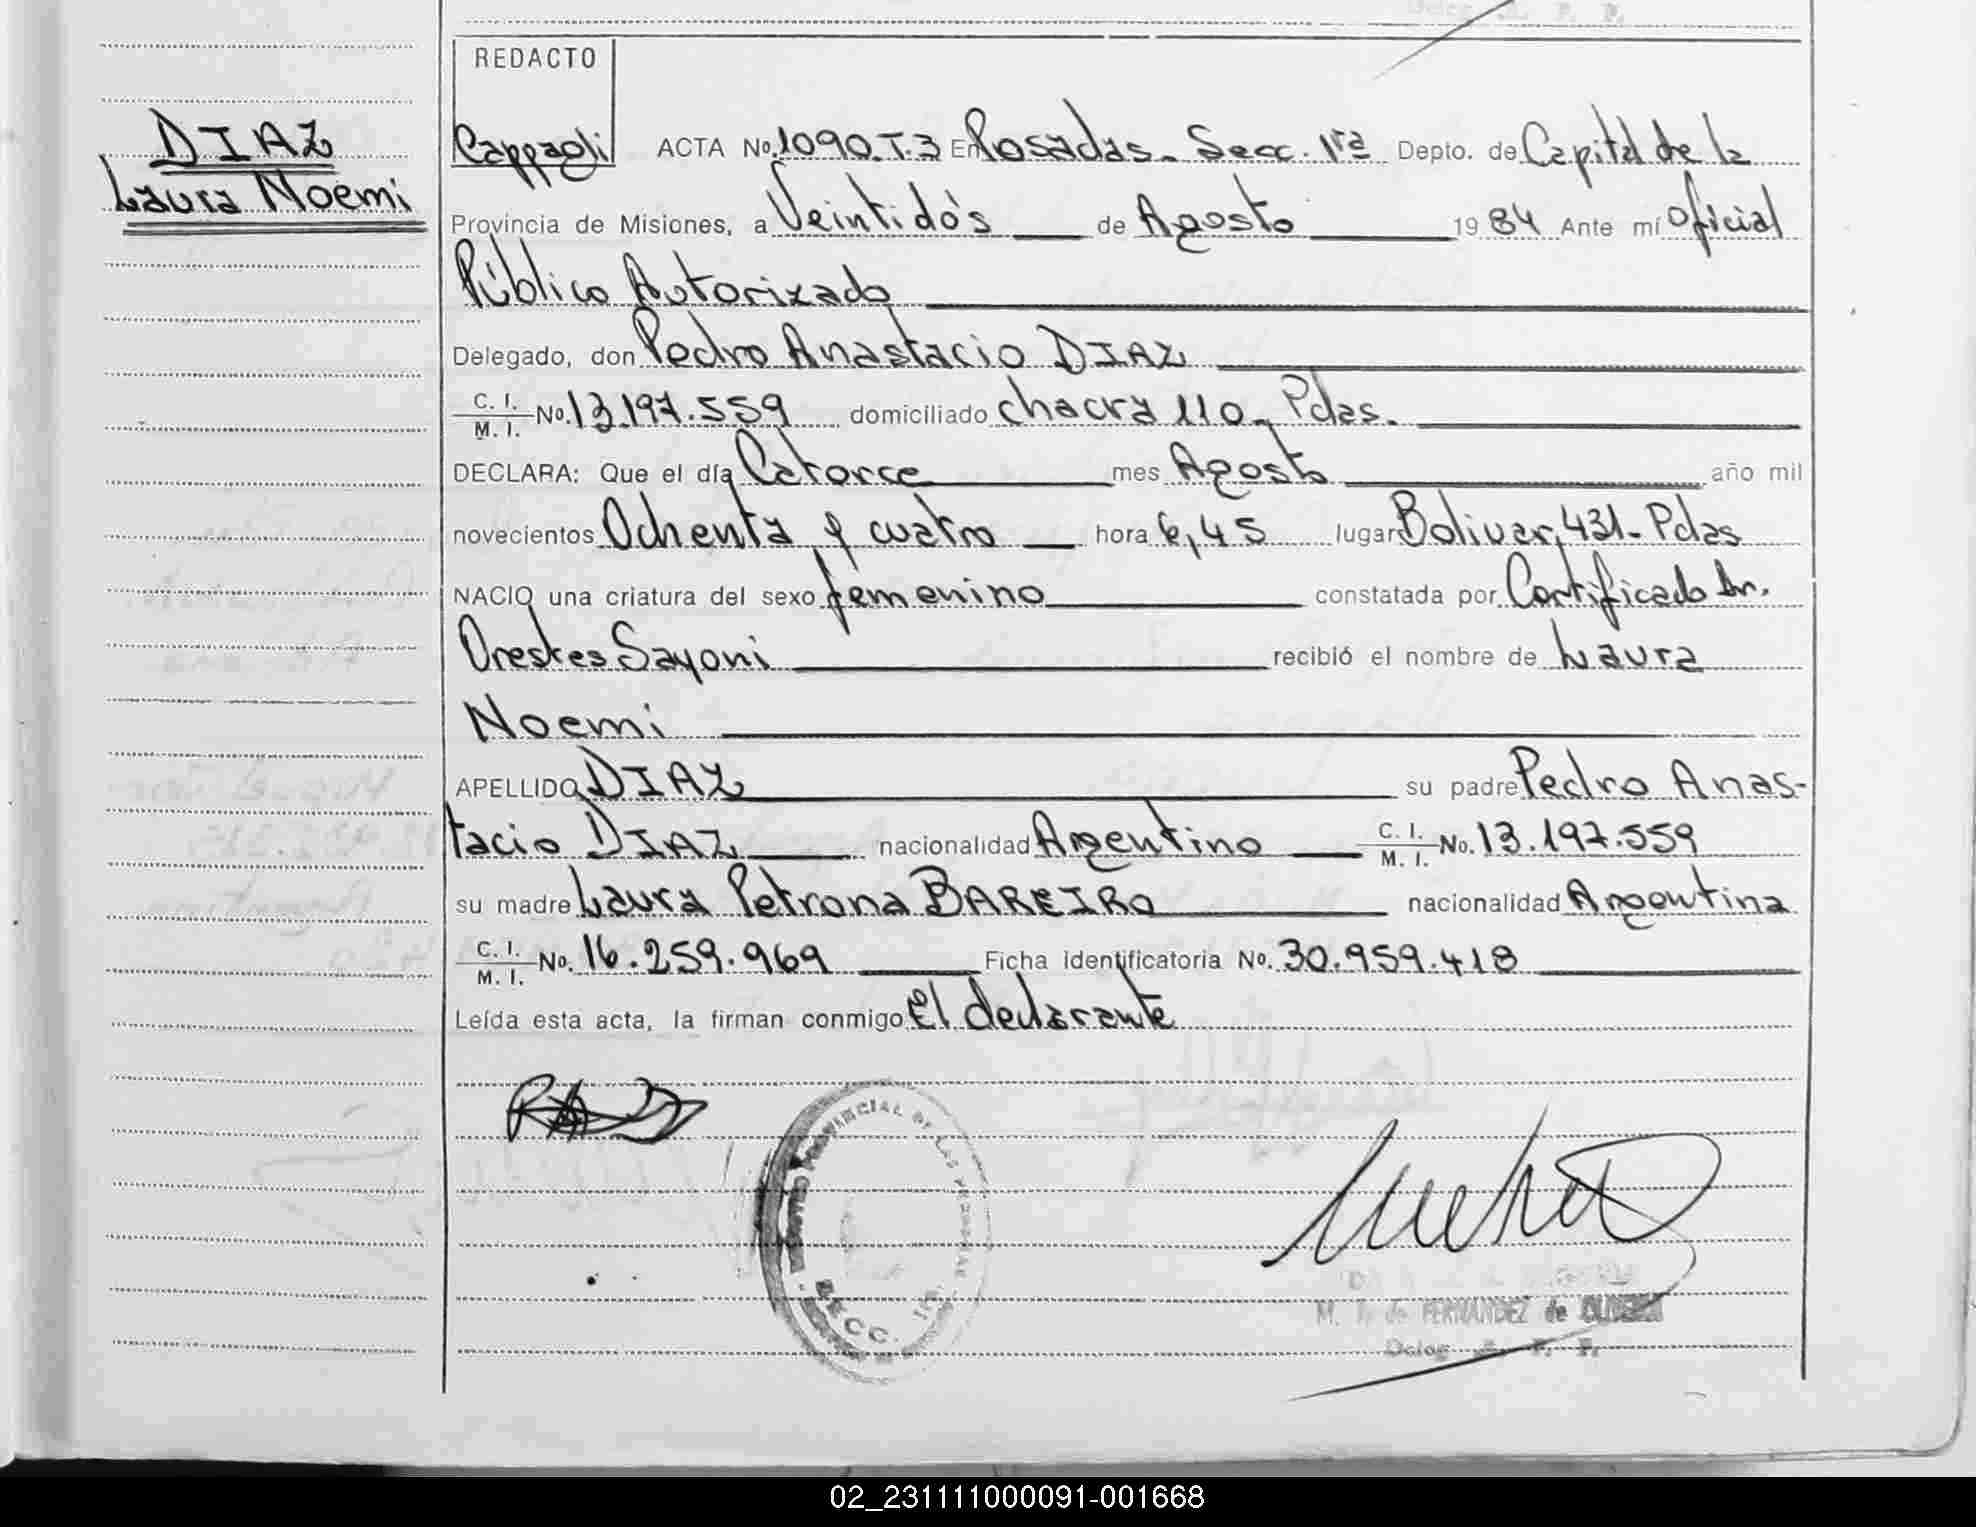 Deleg. P. P.
REDACTO
DIAZ
Laura Noemi
Cappagli ACTA No. 1090.T.3 En Posadas. Secc. 1ra Depto. de Capital de la
Provincia de Misiones, a Veintidós de Agosto 19 84 Ante mí oficial
Público Autorizado
Delegado, don Pedro Anastacio DIAZ
C. I. / M. I. No. 13.197.559 domiciliado chacra 110. Pdas.
DECLARA: Que el día Catorce mes Agosto año mil
novecientos Ochenta y cuatro hora 6,45 lugar Bolivar, 431- Pdas
NACIO una criatura del sexo femenino constatada por Certificado Dr.
Orestes Sayoni recibió el nombre de Laura
Noemi
APELLIDO DIAZ su padre Pedro Anas-
tacio DIAZ nacionalidad Argentino C. I. / M. I. No. 13.197.559
su madre Laura Petrona BAREIRO nacionalidad Argentina
C. I. / M. I. No. 16.259.969 Ficha identificatoria No. 30.959.418
Leída esta acta, la firman conmigo El declarante
PROVINCIAL DE LAS PERSONAS
SECC.
M. de FERNANDEZ de OLIVEIRA
Deleg. P. P.
02_231111000091-001668